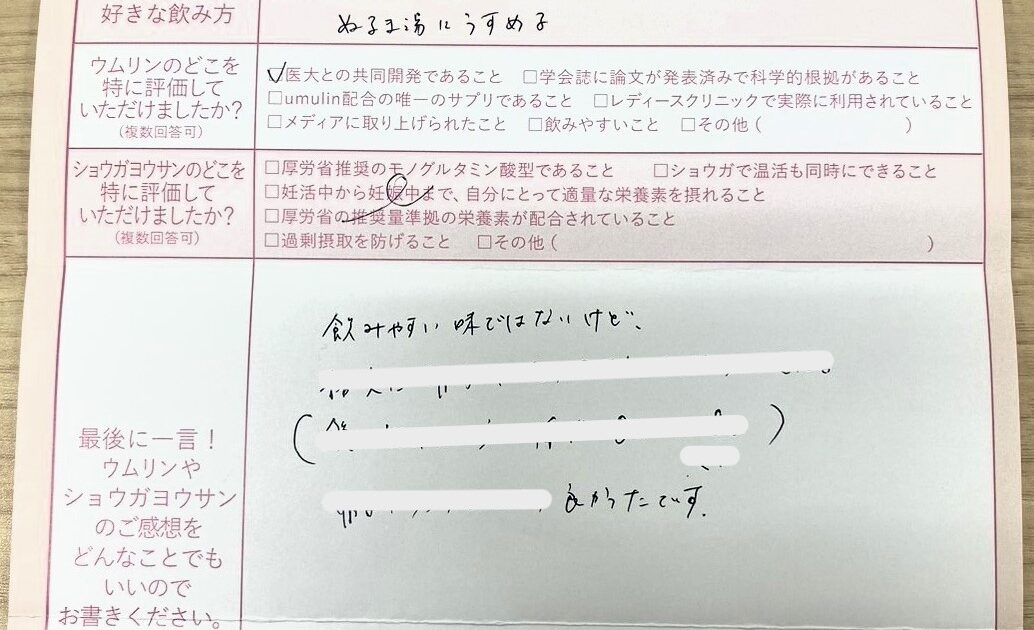 好きな飲み方
ぬるま湯にうすめる
ウムリンのどこを
特に評価して
いただけましたか?
(複数回答可)
☑医大との共同開発であること □学会誌に論文が発表済みで科学的根拠があること
□umulin配合の唯一のサプリであること □レディースクリニックで実際に利用されていること
□メディアに取り上げられたこと □飲みやすいこと □その他( )
ショウガヨウサンのどこを
特に評価して
いただけましたか?
(複数回答可)
□厚労省推奨のモノグルタミン酸型であること □ショウガで温活も同時にできること
□妊活中から妊娠中まで、自分にとって適量な栄養素を摂れること
□厚労省の推奨量準拠の栄養素が配合されていること
□過剰摂取を防げること □その他( )
最後に一言!
ウムリンや
ショウガヨウサン
のご感想を
どんなことでも
いいので
お書きください。
飲みやすい味ではないけど、
( )
良かったです。